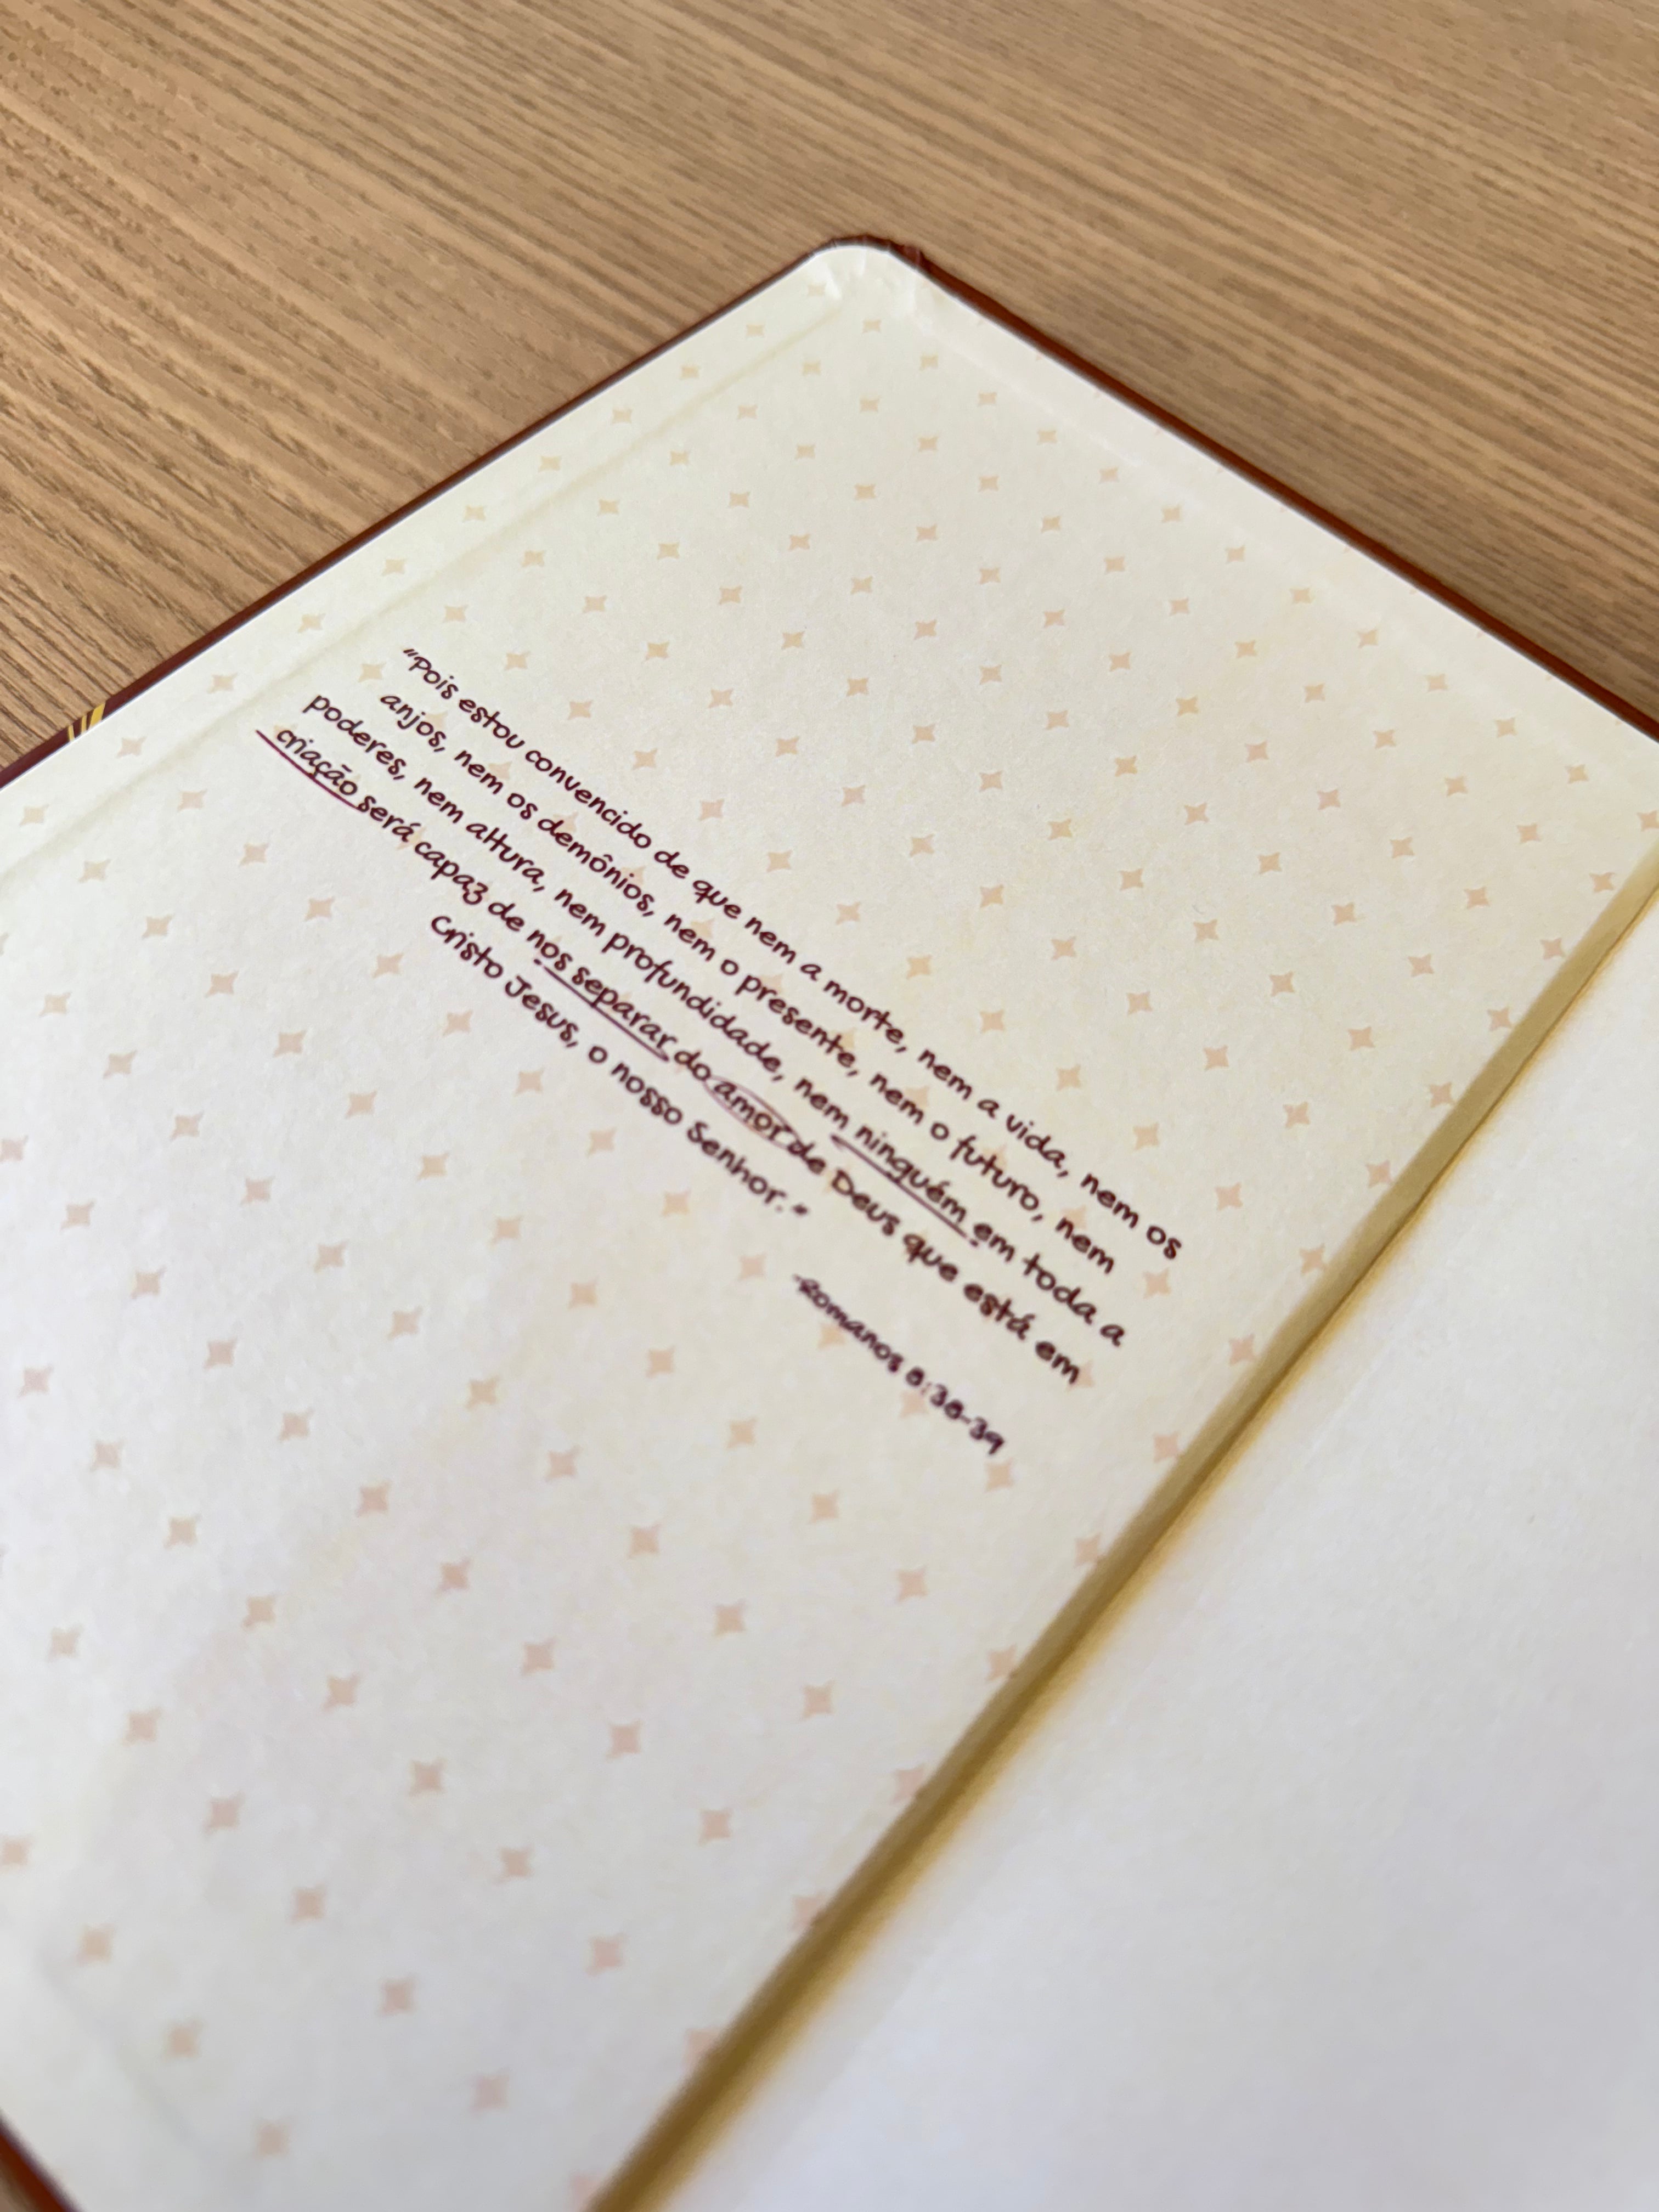 “Pois estou convencido de que nem a morte, nem a vida, nem os
anjos, nem os demônios, nem o presente, nem o futuro, nem
poderes, nem altura, nem profundidade, nem ninguém em toda a
criação será capaz de nos separar do amor de Deus que está em
Cristo Jesus, o nosso Senhor.”
-Romanos 8:38-39